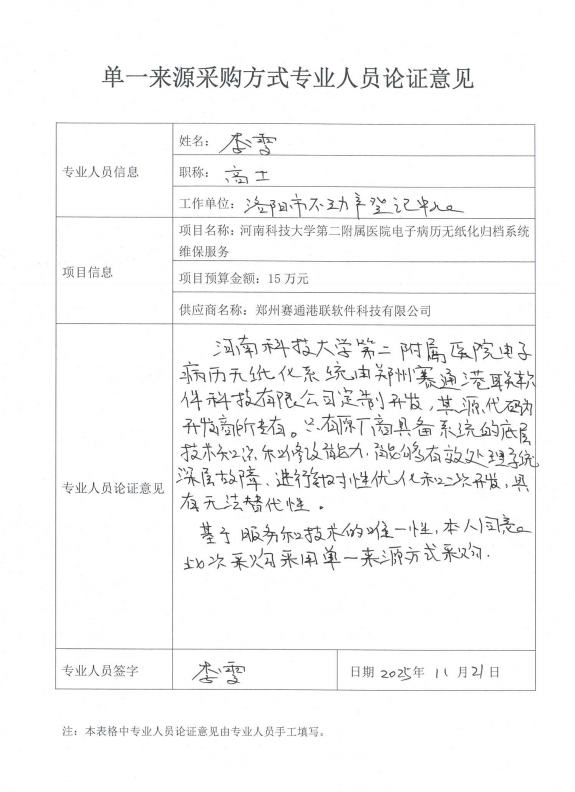 单一来源采购方式专业人员论证意见
专业人员信息
姓名：李雯
职称：高工
工作单位：洛阳市不动产登记中心
项目信息
项目名称：河南科技大学第二附属医院电子病历无纸化归档系统
维保服务
项目预算金额：15 万元
供应商名称：郑州赛通港联软件科技有限公司
专业人员论证意见
河南科技大学第二附属医院电子
病历无纸化系统由郑州赛通港联软
件科技有限公司定制开发，其源代码为
开发商所专有。只有原厂商具备系统的底层
技术和修改能力，能够有效处理系统
深层故障、进行针对性优化和二次开发，具
有无法替代性。
基于服务和技术的唯一性，本人同意
此次采购采用单一来源方式采购.
专业人员签字
李雯
日期 2025年 11 月21日
注：本表格中专业人员论证意见由专业人员手工填写。